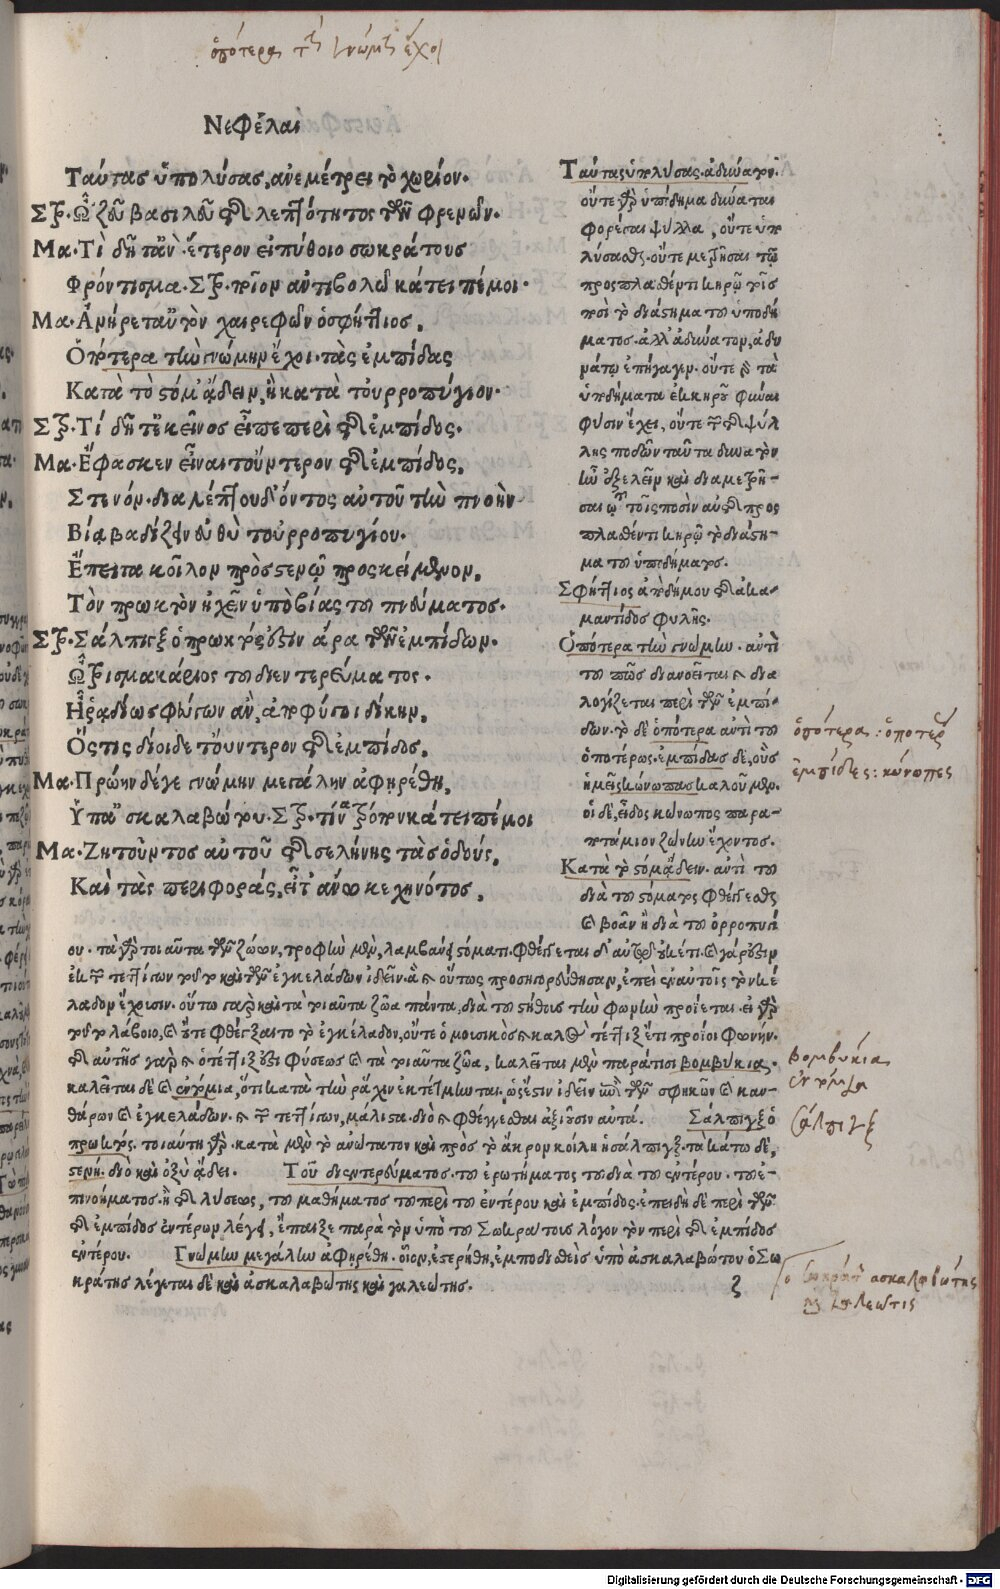 ὁπότερα τὴν γνώμην ἔχοι
Νεφέλαι
Ταύτας ὑπολύσας, ἀνεμέτρει τὸ χωρίον.
Στρ. Ὦ ζεῦ βασιλεῦ τῆς λεπτότητος τῶν φρενῶν.
Μα. Τί δῆτ᾽ ἂν ἕτερον εἰ πύθοιο σωκράτους
Φρόντισμα. Στρ. ποῖον ἀντιβολῶ κάτειπέ μοι.
Μα. Ἀνήρετ᾽ αὐτὸν χαιρεφῶν ὁ σφήττιος,
Ὁπότερα τὴν γνώμην ἔχοι. τὰς ἐμπίδας
Κατὰ τὸ στόμ᾽ ᾄδειν, ἢ κατὰ τοὐρροπύγιον.
Στρ. Τί δῆτ᾽ ἐκεῖνος εἶπε περὶ τῆς ἐμπίδος.
Μα. Ἔφασκεν εἶναι τοὔντερον τῆς ἐμπίδος,
Στενόν. διὰ λεπτοῦ δ᾽ ὄντος αὐτοῦ τὴν πνοὴν
Βίᾳ βαδίζειν εὐθὺ τοὐρροπυγίου.
Ἔπειτα κοῖλον πρὸς στενῷ προσκείμενον,
Τὸν πρωκτὸν ἠχεῖν ὑπὸ βίας τοῦ πνεύματος.
Στρ. Σάλπιγξ ὁ πρωκτός ἐστιν ἄρα τῶν ἐμπίδων.
Ὦ τρισμακάριος τοῦ διεντερεύματος.
Ἦ ῥᾳδίως φεύγων ἂν, ἀποφύγοι δίκην,
Ὅστις δίοιδε τοὔντερον τῆς ἐμπίδος.
Μα. Πρώην δέ γε γνώμην μεγάλην ἀφηρέθη,
Ὑπ᾽ ἀσκαλαβώτου. Στρ. τίνα τρόπον κάτειπέ μοι
Μα. Ζητοῦντος αὐτοῦ τῆς σελήνης τὰς ὁδούς,
Καὶ τὰς περιφοράς, εἶτ᾽ ἄνω κεχηνότος,
Ταύτας ὑπολύσας. ἀδύνατον.
οὔτε γὰρ ὑπόδημα δύναται
φορέσαι ψύλλα, οὔτε ὑπο
λύσασθαι. οὔτε μετρῆσαι τῷ
προσπλασθέντι κηρῷ τοῖς
ποσὶ τὸ διάστημα τοῦ ὑποδή
ματος. ἀλλ᾽ ἀδύνατον, ἀδυ
νάτῳ ἐπήγαγεν. οὔτε γὰρ τὰ
ὑποδήματα ἐκ κηροῦ φύναι
φύσιν ἔχει, οὔτε τοὺς τῆς ψύλ
λης ποδῶν ταῦτα δυνατὸν
ἦν ἐξελεῖν καὶ διαμετρῆ-
σαι τοῖς ποσὶν αὐτῆς προσ
πλασθέντι κηρῷ τὸ διάστη-
μα τοῦ ὑποδήματος.
Σφήττιος ἀπὸ δήμου τῆς ἀκα-
μαντίδος φυλῆς.
Ὁπότερα τὴν γνώμην. ἀντὶ
τοῦ πῶς διανοεῖται καὶ δια
λογίζεται περὶ τῶν ἐμπί-
δων. τὸ δὲ ὁπότερα ἀντὶ τοῦ
ὁποτέρως. ἐμπίδας δὲ, οὓς
ἡμεῖς κώνωπας καλοῦμεν.
οἱ δὲ, εἶδος κώνωπος παρα-
ποτάμιον ζώνην ἔχοντος.
Κατὰ τὸ στόμ᾽ ᾄδειν. ἀντὶ τοῦ
διὰ τοῦ στόματος φθέγγεσθαι
καὶ βοᾶν ἢ διὰ τοῦ ὀρροπυγί
ου. τὰ γὰρ τοιαῦτα τῶν ζώων, τροφὴν μὲν, λαμβάνει στόματι. φθέγγεται δ᾽ αὐτῷ οὐκέτι. καὶ γάρ ἐστιν
ἐκ τοῦ τεττίγων τοῦτο καὶ τῶν ἐγκελάδων ἰδεῖν. ἃ καὶ οὕτως προσηγορεύθησαν, ἐπεὶ ἐν αὐτοῖς τὸν κέ
λαδον ἔχουσιν. οὕτω γὰρ καὶ τὰ τοιαῦτα ζῶα πάντα, διὰ τοῦ στήθους τὴν φωνὴν προΐεται. εἰ γὰρ
τοῦτο λάβοιο, καὶ οὔτε φθέγξαιτο τὸ ἐγκέλαδον, οὔτε ὁ μουσικὸς καὶ καλὸς τέττιξ ἔτι προΐοι φωνήν.
τῆς αὐτῆς γὰρ καὶ ὁ τέττιξ ἐστὶ φύσεως καὶ τὰ τοιαῦτα ζῶα, καλεῖται μὲν παρά τισι βομβύκια.
καλεῖται δὲ καὶ ἐντομα, ὅτι κατὰ τὴν ῥάχιν ἐκτέτμηται. ὡς ἔστιν ἰδεῖν ἐπὶ τῶν σφηκῶν καὶ καν-
θάρων καὶ ἐγκελάδων. καὶ τοῦ τεττίγων, μάλιστα. διὸ καὶ φθέγγεσθαι ἀξιοῦσιν αὐτά. Σάλπιγξ ὁ
πρωκτός. τοιαύτη γὰρ. κατὰ μὲν τὸ ἀνώτατον καὶ πρὸς τὸ ἄκρον κοίλη ἡ σάλπιγξ. τὰ κάτω δὲ,
στενή. διὸ καὶ ὀξὺ ᾄδει. Τοῦ διεντερεύματος. τοῦ ἐρωτήματος τοῦ διὰ τοῦ ἐντέρου. τοῦ ἐ-
πινοήματος. ἢ τῆς λύσεως, τοῦ μαθήματος τοῦ περὶ τοῦ ἐντέρου καὶ ἐμπίδος. ἐπειδὴ δὲ περὶ τῶν
τῆς ἐμπίδος ἐντέρων λέγει, ἔπαιξε παρὰ τὸν ὑπὸ τοῦ Σωκράτους λόγον τὸν περὶ τῆς ἐμπίδος
ἐντέρου. Γνώμην μεγάλην ἀφηρέθη. οἷον, ἐστερήθη, ἐμποδισθεὶς ὑπὸ ἀσκαλαβώτου ὁ Σω
κράτης λέγεται δὲ καὶ ἀσκαλαβώτης καὶ γαλεώτης.
ζ
ὁπότερα : ὁποτέρως
ἐμπίδες : κώνωπες
βομβυκία
ἔντομα
σάλπιγξ
ὁ Σωκράτης ἀσκαλαβώτης
καὶ γαλεώτις
Digitalisierung gefördert durch die Deutsche Forschungsgemeinschaft - DFG